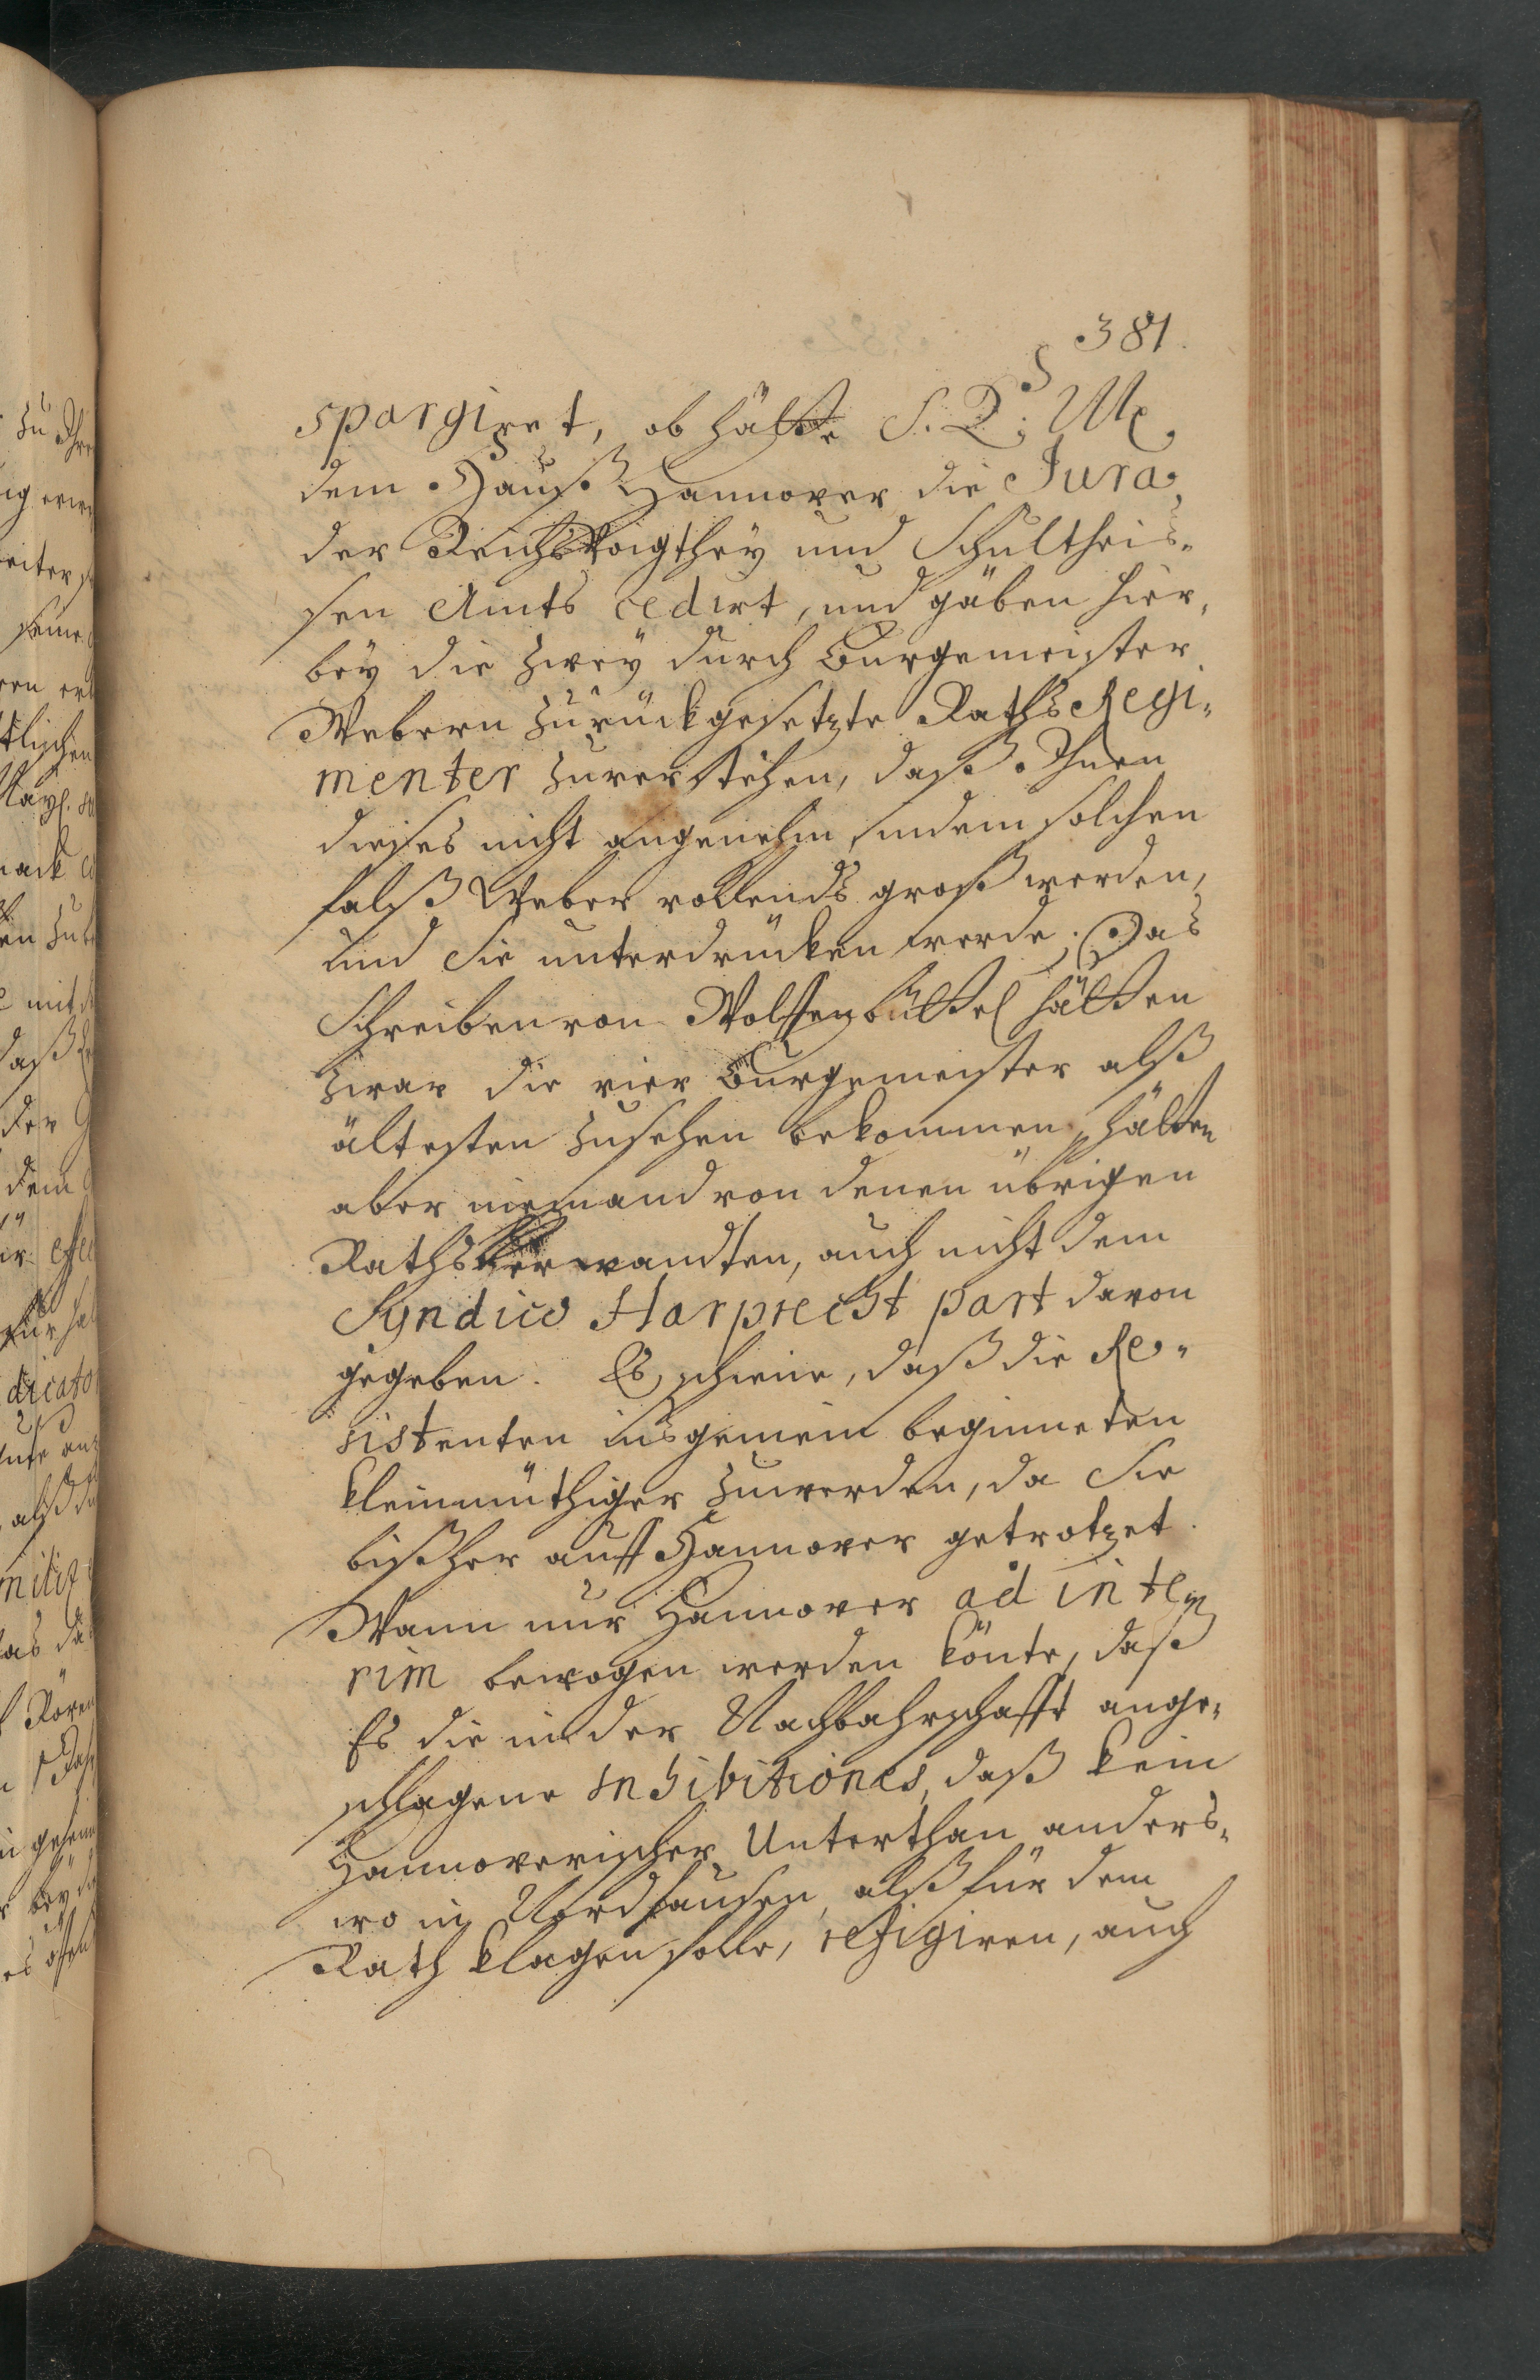 381.
spargiret, ob hätte S. K. M.
dem Hauß Hannover die Jura
der Reichs Voigthey und Schultheis-
sen Amts cedirt, und gäben hier-
bey die zwey durch Burgemeister
Webern zurückgesetzte Raths Regi-
menter zuverstehen, daß Ihnen
dieses nicht angenehm, indem solchen
falß Weber vollends groß werden,
und Sie unterdrücken werde. Das
Schreiben von Wolffenbüttel hätten
zwar die vier Burgemeister alß
ältesten zusehen bekommen, hätten
aber niemand von denen übrigen
Raths Verwandten, auch nicht dem
Syndico Harprecht part davon
gegeben. Es schiene, daß die Re-
sistenten insgemein beginneten
kleinmüthiger zuwerden, da Sie
bißher auff Hannover getrotzet.
Wann nur Hannover ad inte-
rim bewogen werden könte, daß
Es die in der Nachbahrschafft ange-
schlagene Inhibitiones, daß kein
Hannoverischer Unterthan anders-
wo in Nordhausen, alß für dem
Rath klagen solle, refigiren, auch